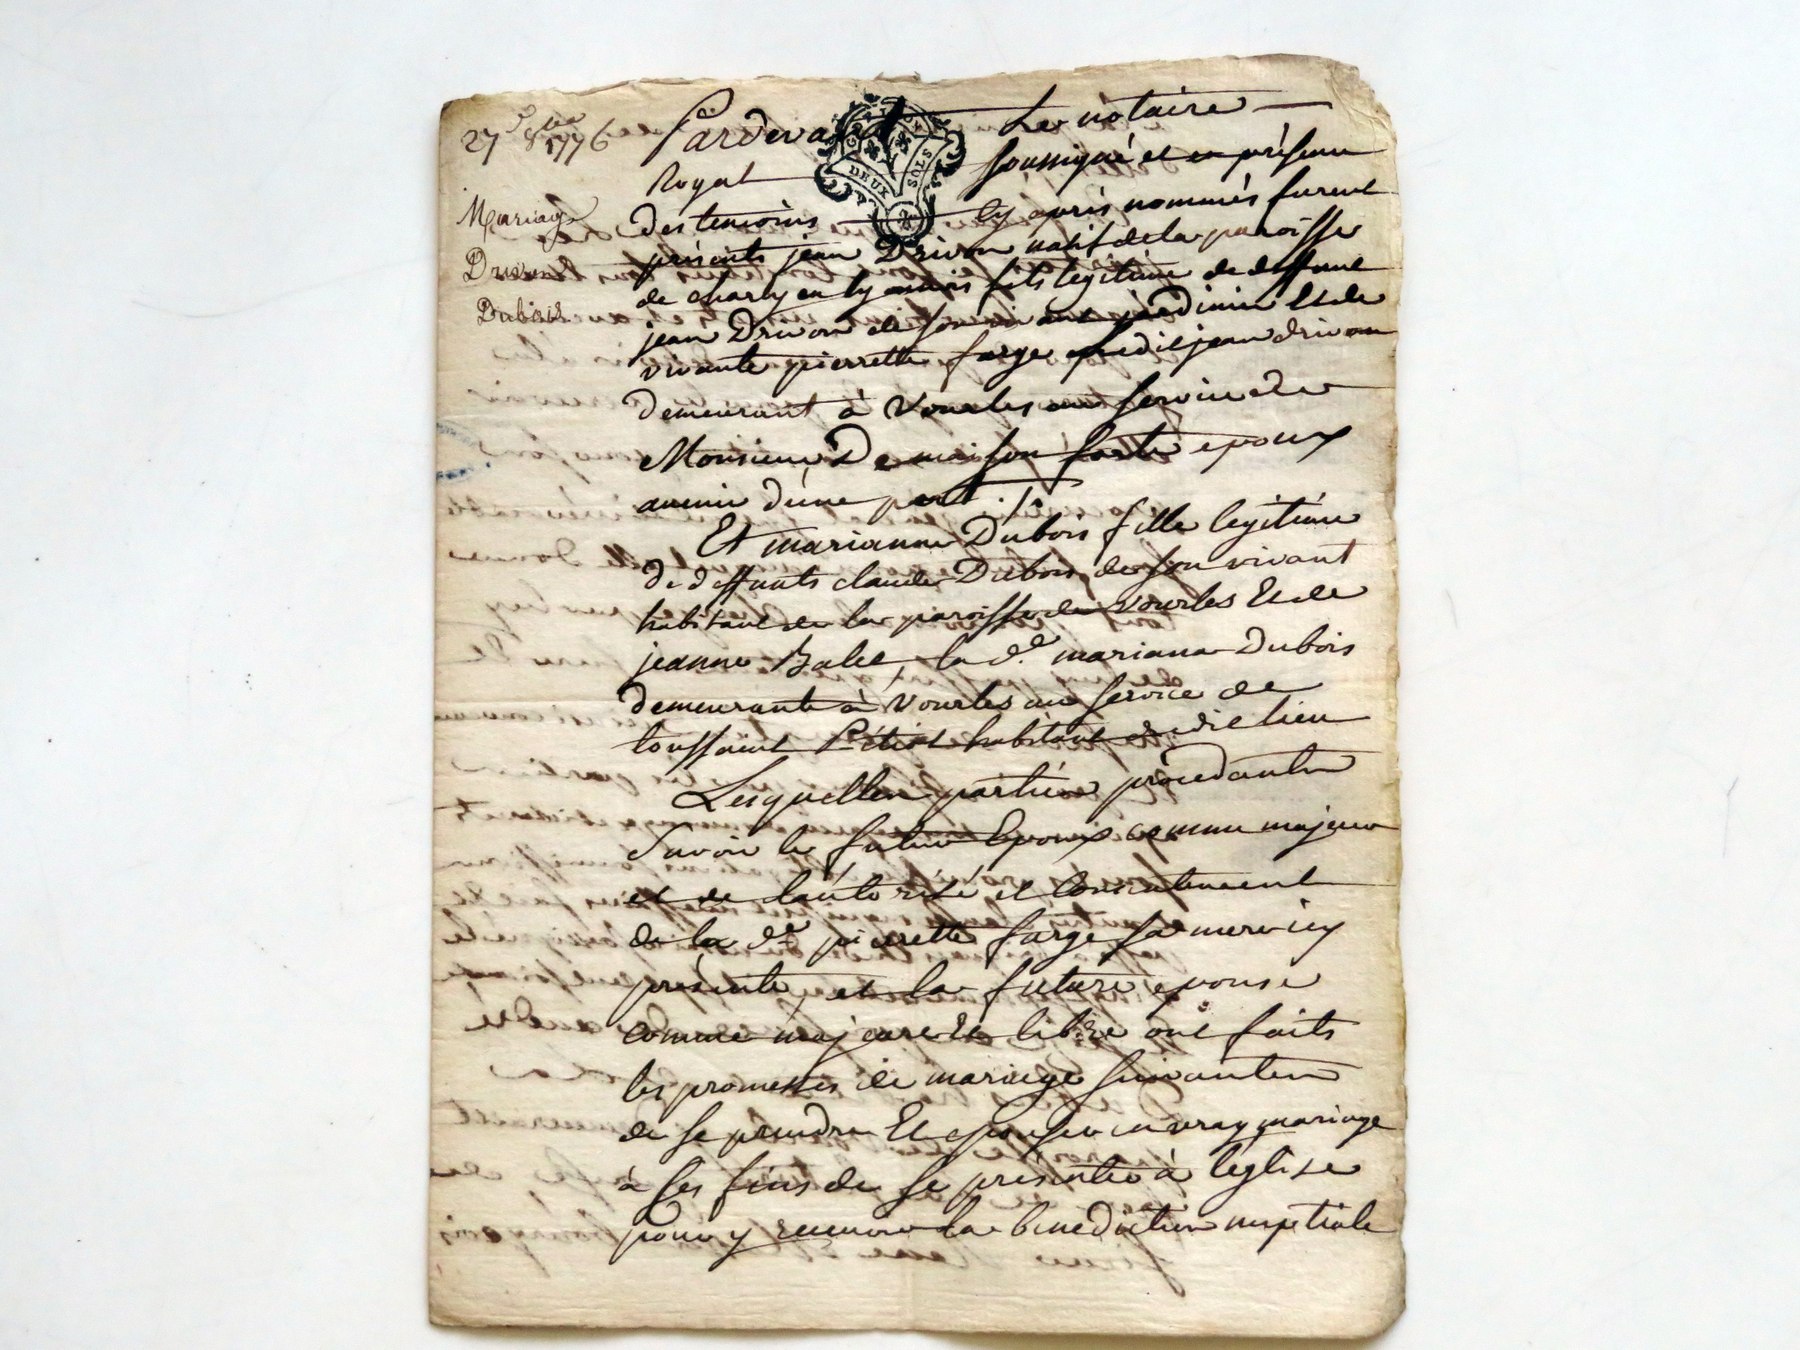 27 8bre 1776
Mariage
Drivon
Dubois
Pardevant Le notaire
DEUX SOLS
Royal soussigné et en présence
des temoins cy après nommés furent
présents jean Drivon natif de la paroisse
de charly en lyonnois fils legitime de deffunt
jean Drivon de son vivant jardinier Et de
vivante pierrette farge ledit jean drivon
demeurant à Vourles au service de
Monsieur De maison forte epoux
avenir d'une part ./.
Et marianne Dubois fille legitime
de deffunts claude Dubois de son vivant
habitant de la paroisse de Vourles Et de
jeanne Balee, la de. mariane Dubois
demeurante à Vourles au service de
toussaint habitant dudit lieu
Lesquelles parties procedantes
Savoir le futur Epoux comme majeur
et de l'autorité et consentement
de la de. pierrette farge sa mere icy
présente, et la future epouse
comme majeure et libre ont faits
les promesses de mariage suivantes
de se prendre Et epouser en vray mariage
à ses fins de se presenter à leglise
pour y recevoir la benediction nuptiale